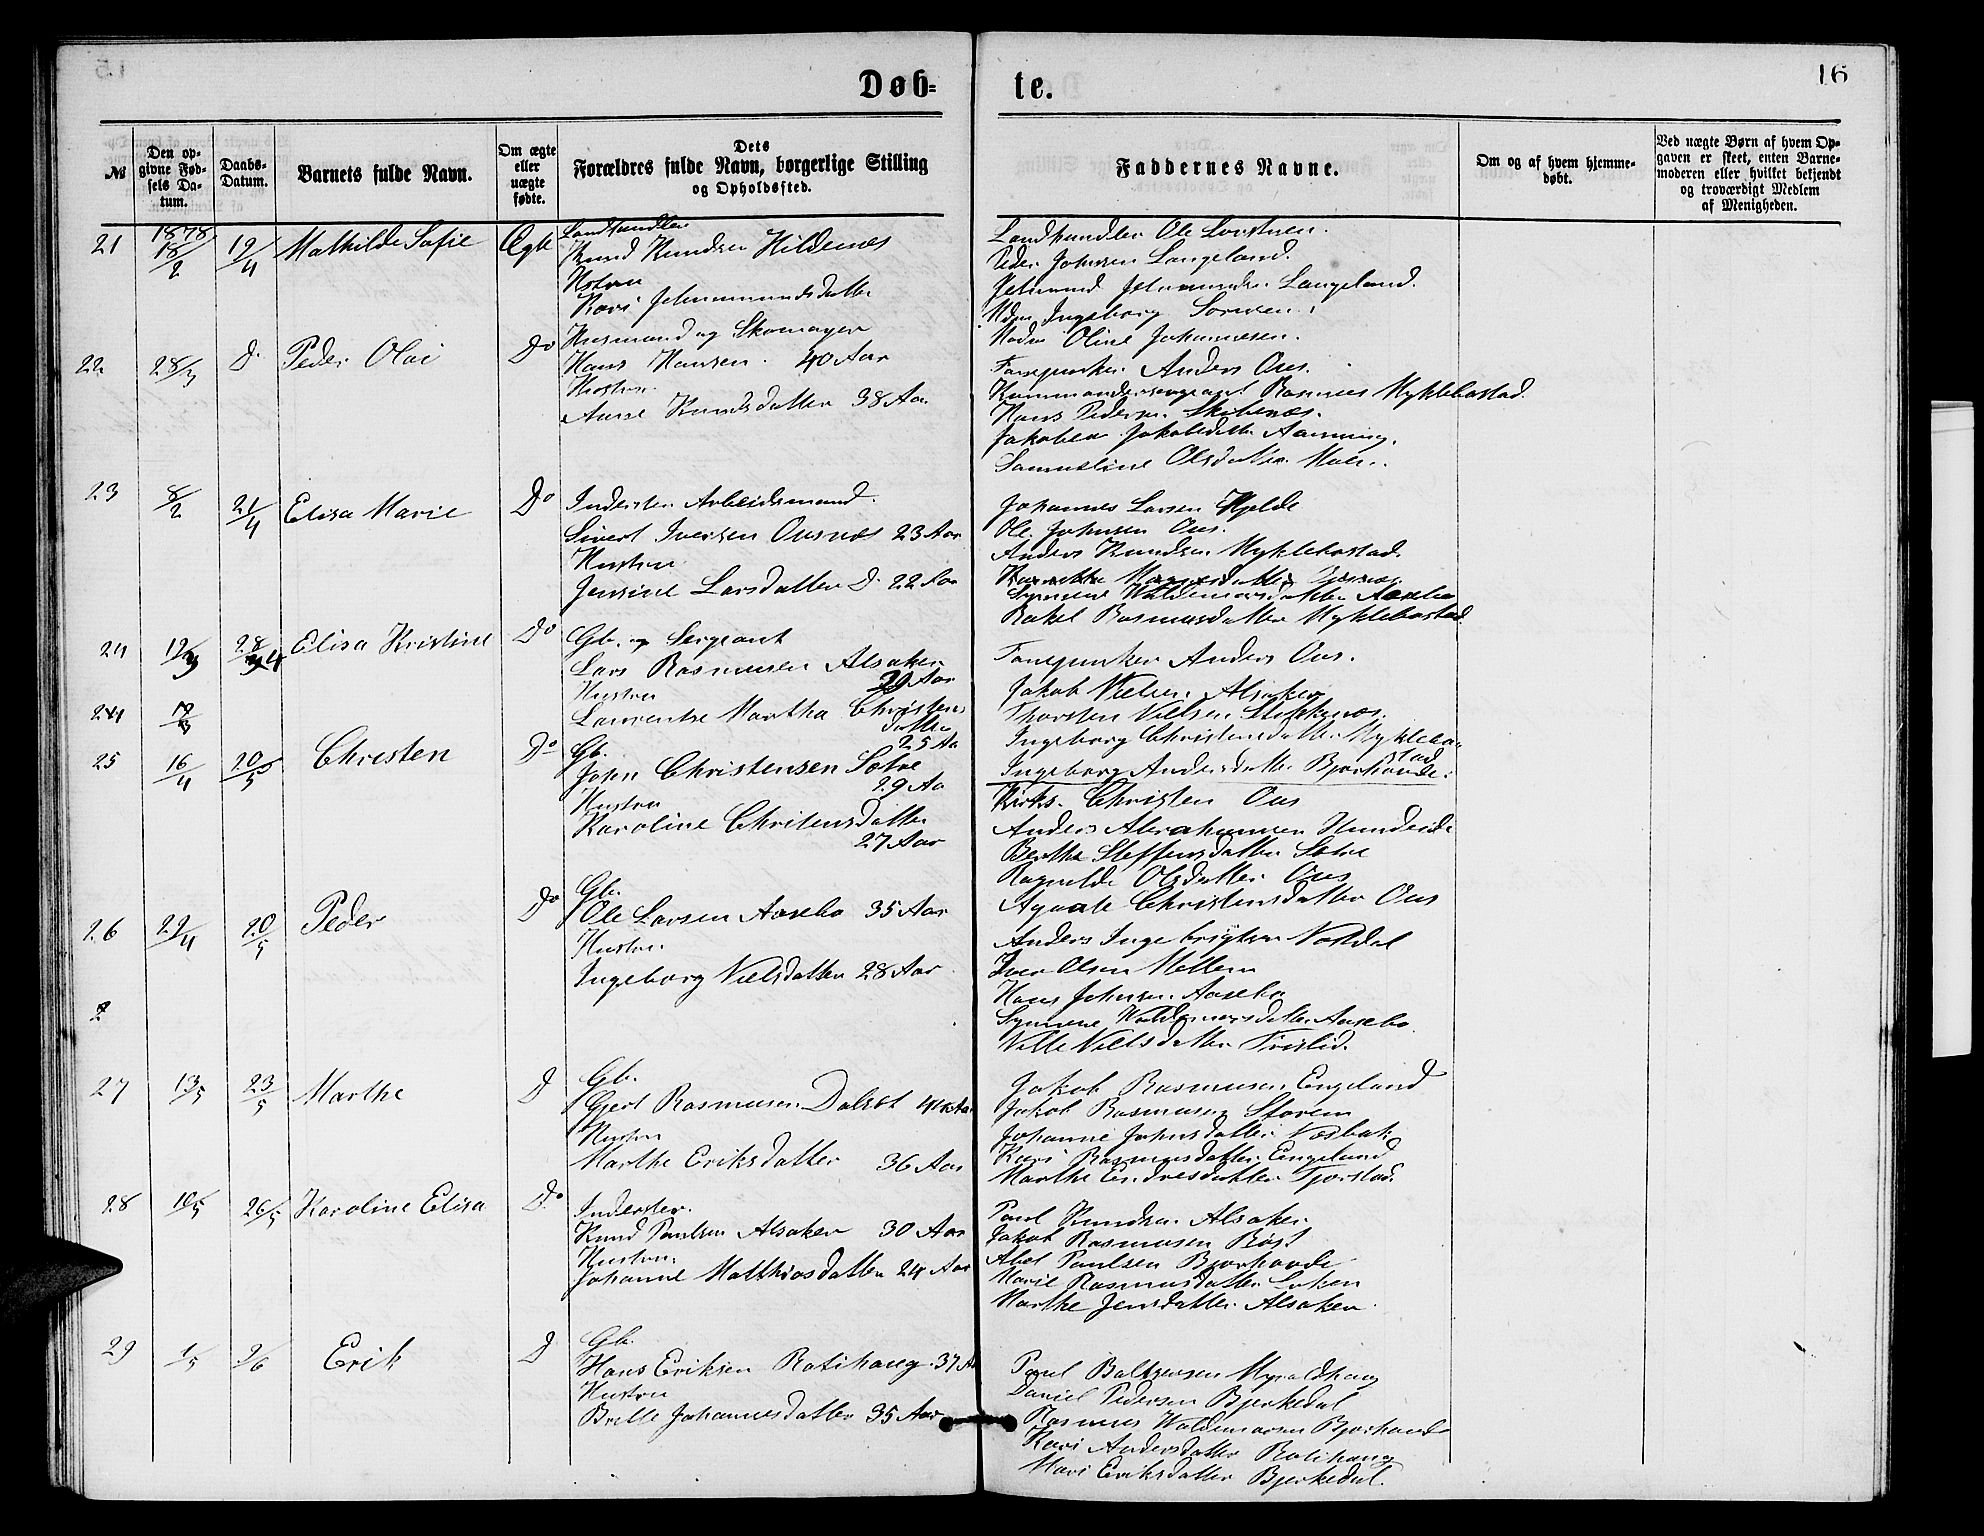 16
Døb=
te.
№
Den opgivne Fødsels Datum.
Daabs-Datum.
Barnets fulde Navn.
Om ægte eller uægte fødte.
Dets Forældres fulde Navn, borgerlige Stilling og Opholdssted.
Faddernes Navne.
Om og af hvem hjemmedøbt.
Ved uægte Børn af hvem Opgaven er skeet, enten Barnemoderen eller hvilket bekjendt og troværdigt Medlem af Menigheden.
1878
21 18/2 19/4 Mathilde Sofie Ægte
Landhandler
Knud Knudsen Hildenes
Hstru
Kari Jetmundsdatter
Landhandler Ole
Peder Johnsen Langeland.
Jetmund Jetmundsen Langeland.
Mdm Ingeborg
Madm Oline Johannesen.
22 28/3 D. Peder Olai Do
Husmand og Skomager
Hans Hansen. 40 Aar
Hustru
Anne Knudsdatter 38 Aar
Fanejunker Anders Ous.
Kommandersergeant Rasmus Myklebostad.
Hans Pedersen
Jakobsdatter
Samueline Olsdatter
23 8/2 21/4 Elisa Marie Do
Inderster Arbeidsmand.
Sivert Iversen Ousnes 23 Aar
Hustru
Jensine Larsdatter D. 22 Aar
Johannes Larsen Hjelde
Ole Johnsen Ous.
Anders Knudsen Myklebostad.
Synneve Waldemarsdatter Aasebø
Rakel Rasmusdatter Myklebostad
24 19/3 28/4 Elisa Kristine Do
Gb. og Sergeant
Lars Rasmusen Alsaker
29 Aar
Hustru
Laurentse Martha Christens
datter
25 Aa
Fanejunker Anders Ous.
Jakob Nielsen Alsaker
Thorsten Nielsen
Ingeborg Christensdatter Myklebo
stad
Ingeborg Andersdatter Bjørhovde.
25 16/4 20/5 Christen Do
Gb.
John Christensen Sætre
29 Aa
Hustru
Karoline Christensdatter
27 Aar
Kirks. Christen Ous
Anders Abrahamsen Hundeide
Berthe Steffensdatter Sætre
Ragnilde Olsdatter Ous
Agnate Christensdatter Ous
26 29/4 20/5 Peder Do
Gb.
Ole Larsen Aasebø 35 Aar
Hustru
Ingeborg Nielsdatter 28 Aar
Anders Ingebrigtsen
Iver Olsen Mellem
Hans Johnsen Aasebø
Synneve Waldemarsdatter Aasebø
Nille Nielsdatter
27 13/5 23/5 Marthe D
Gb.
Gjert Rasmusen Aar
Hustru
Marthe Eriksdatter 36 Aar
Jakob Rasmusen Engeland
Jakob Rasmusen Storem
Johanne Johnsdatter
Kari Rasmusdatter Engeland
Marthe Endresdatter
28 10/5 26/5 Karoline Elisa Do
Inderster.
Knud Paulsen Alsaker 30 Aar
Hustru
Johanne Matthiasdatter 24 Aar
Paul Knudsen Alsaker
Jakob Rasmusen
Abel Paulsen Bjørhovde
Marie Rasmusdatter
Marthe Jensdatter Alsaker.
29 1/5 9/6 Erik D
Gb.
Hans Eriksen Rotihaug 37 Aa
Hustru
Brille Johannesdatter 35 Aar
Paul Baltzersen Myroldhaug
Daniel Pedersen Bjerkedal
Rasmus Waldemarsen Bjørhovde
Kari Andersdatter Rotihaug
Mari Eriksdatter Bjerkedal.